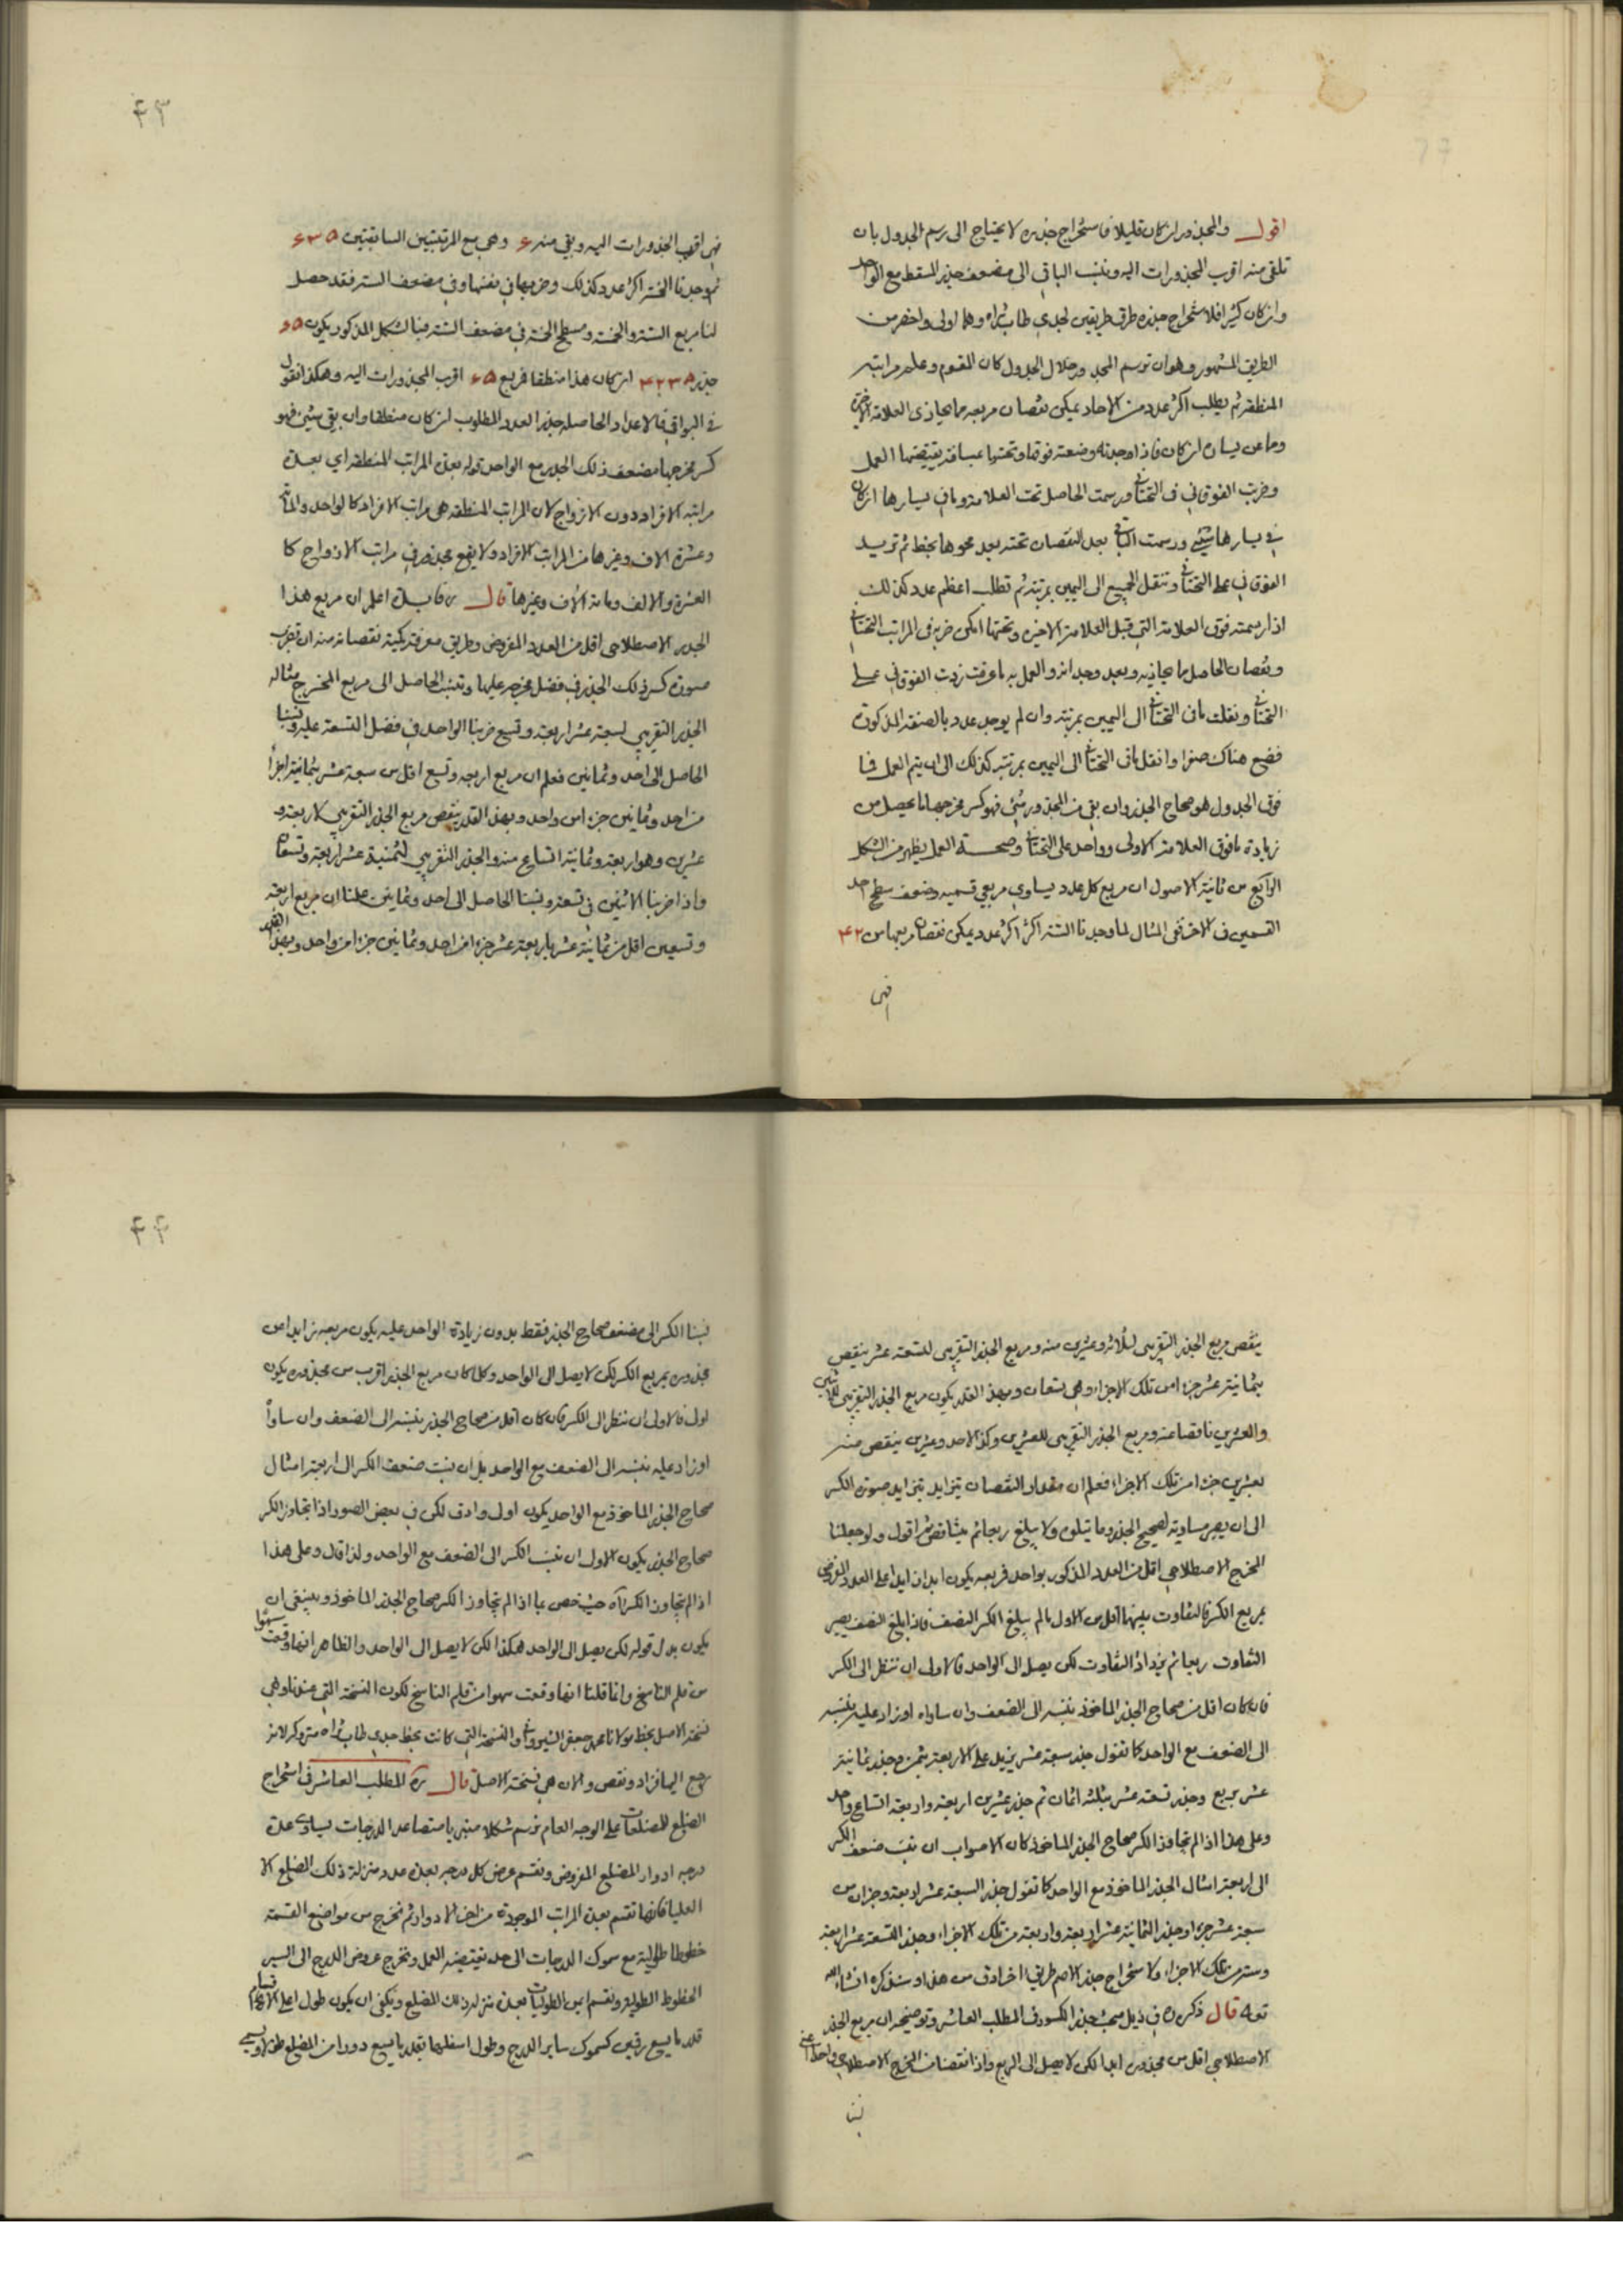 اقول والمجذور ان كان قليلا فاستخراج جذره لا يحتاج الى رسم الجدول بان
تلقى منه اقرب المجذورات اليه وتنسب الباقي الى مضعف جذر المسقط مع الواحد
وان كان كثيرا فلاستخراج جذره طرق طريقين لجدي طاب ثراه وهما اولى واخصر من
الطريق المشهور وهو ان ترسم المجذور خلال الجدول كان المقسوم وعلم مراتبه
المنطقة ثم يطلب اكثر عدد من الاحاد يمكن نقصان مربعه مما يحاذى العلامة الاخيرة
وما عن يساره ان كان فاذا وجدته وضعته فوقها وتحتها بمسافة يقتضيها العمل
وضربت الفوقاني في التحتاني ورسمت الحاصل تحت العلامة وما في يسارها ان كان
في يسارها شيئ ورسمت الباقي بعد النقصان تحته بعد محوها بخط ثم تزيد
الفوقاني على التحتاني وتنقل الجميع الى اليمين بمرتبة ثم تطلب اعظم عدد كذلك
اذا رسمته فوق العلامة التي قبل العلامة الاخيرة وتحتها امكن ضربه في المراتب التحتاني
ونقصان الحاصل مما يحاذيه وبعد وجدانه والعمل به ما عرفت زدت الفوقاني على
التحتاني ونقلت ما في التحتاني الى اليمين بمرتبة وان لم يوجد عدد بالصفة المذكورة
فضع هناك صفرا وانقل ما في التحتاني الى اليمين بمرتبة كذلك الى ان يتم العمل فما
فوق الجدول هو صحاح الجذر وان بقي من المجذور شئ فهو كسر مخرجها ما يحصل من
زيادة ما فوق العلامة الاولى وواحد على التحتاني وصحة العمل يظهر من الشكل
الرابع من ثانية الاصول ان مربع كل عدد يساوي مربعي قسميه وضعف سطح احد
القسمين في الاخر ففى المثال لما وجدنا الستة اكثر اكثر عدد يمكن نقصان مربعها من ۴۲
فهى
۴۳
فهى اقرب المجذورات اليه وبقي منه ۶ وهى مع المرتبتين السابقتين ۶۳۵
ثم وجدنا الخمسة اكثر عدد كذلك وضربها في نفسها وفي مضعف الستة فقد حصل
لنا مربع الستة والخمسة ومسطح الخمسة في مضعف الستة فبالشكل المذكور يكون ۶۵
جذر ۴۲۳۵ ان كان هذا منطقا فمربع ۶۵ اقرب المجذورات اليه وهكذا نقول
في البواقي فالاعداد الحاصلة جذر العدد المطلوب ان كان منطقا وان بقي شيئ فهو
كسر مخرجها مضعف ذلك الجذر مع الواحد قوله بعدة المراتب المنطقة اي بعدة
مراتبه الافراد دون الازواج لان المراتب المنطقة هى مراتب الافراد كالواحد والمائة
وعشرة الاف وغيرها من المراتب الافراد ولا يقع مجذور في مراتب الازواج كا
العشرة والالف ومائة الاف وغيرها قال ره فايدة اعلم ان مربع هذا
الجذر الاصطلاحى اقل من العدد المفروض وطريق معرفة كمية نقصانه منه ان تضرب
صورة كسر ذلك الجذر في فضل مخرجه عليها وتنسب الحاصل الى مربع المخرج مثاله
الجذر التقريبي لسبعة عشر اربعة وتسع ضربنا الواحد في فضل التسعة عليه ونسبنا
الحاصل الى احد وثمانين فعلم ان مربع اربعة وتسع اقل من سبعة عشر بثمانية اجزأ
من احد وثمانين جزء من واحد وبهذا القدر ينقص مربع الجذر التقريبي لاربعة و
عشرين وهو اربعة وثمانية اتساع منه والجذر التقريبي لثمنية عشر اربعة وتسعان
واذا ضربنا الاثنين في تسعة ونسبنا الحاصل الى احد وثمانين علمنا ان مربع اربعة
وتسعين اقل من ثمانية عشر باربعة عشر جزء من احد وثمانين جزء من واحد وبهذا القدر
ينقص مربع الجذر التقريبى لثلاثة وعشرين منه ومربع الجذر التقريبى للتسعة عشر ينقص
بثمانية عشر جزء من تلك الاجزاء وهى تسعان وبهذا القدر يكون مربع الجذر التقريبى للاثنين
والعشرين ناقصا عنه ومربع الجذر التقريبى للعشرين وكذا الاحد وعشرين ينقص منه
بعشرين جزء من تلك الاجزاء فعلم ان مقدار النقصان يتزايد بتزايد صورة الكسر
الى ان يصير مساوية لصحيح الجذر وما يتلوه ولا يبلغ ربعا ثم يتناقص ثم اقول ولو جعلنا
المخرج الاصطلاحى اقل من العدد المذكور بواحد فمربعه يكون ابدا زايدا على العدد المفروض
بمربع الكسر فالتفاوت بينهما اقل من الاول ما لم يبلغ الكسر النصف فاذا بلغ النصف يصير
التفاوت ربعا ثم يزداد التفاوت لكن يصل الى الواحد فالاولى ان ننظر الى الكسر
فان كان اقل من صحاح الجذر الماخوذ ننسبه الى الضعف وان ساواه او زاد عليه ننسبه
الى الضعف مع الواحد كما نقول جذر سبعة عشر يزيد على الاربعة بثمن وجذر ثمانية
عشر بربع وجذر تسعة عشر بثلثة اثمان ثم جذر عشرين اربعة واربعة اتساع واحد
وعلى هذا اذا لم يتجاوز الكسر صحاح الجذر الماخوذ كان الاصواب ان ننسب ضعف الكسر
الى اربعة امثال الجذر الماخوذ مع الواحد كما نقول جذر السبعة عشر اربعة وجزان من
سبعة عشر جزء وجذر الثمانية عشر اربعة واربعة من تلك الاجزاء وجذر التسعة عشر اربعة
وستة من تلك الاجزاء ولاستخراج جذر الاصم طريق اخر ادق من هذا وسنذكره انشاء الله
تعه قال ذكره في ذيل مبحث جذر الكسور في المطلب العاشر وتوضيحه ان مربع الجذر
الاصطلاحى اقل من مجذوره ابدا لكن لا يصل الى الربع واذا نقصنا من المخرج الاصطلاحى واحدا اعنى
نسبنا
۴۴
نسبنا الكسر الى مضعف صحاح الجذر فقط بدون زيادة الواحد عليه يكون مربعه زايدا من
مجذوره بمربع الكسر لكن لا يصل الى الواحد وكلما كان مربع الجذر اقرب من مجذوره يكون
اولى فالاولى ان ننظر الى الكسر فان كان اقل من صحاح الجذر ننسبه الى الضعف وان ساواه
او زاد عليه ننسبه الى الضعف مع الواحد بل ان نسبت ضعف الكسر الى اربعة امثال
صحاح الجذر الماخوذ مع الواحد يكون اولى وادق لكن في بعض الصور اذا تجاوز الكسر
صحاح الجذر يكون الاولى ان ننسب الكسر الى الضعف مع الواحد ولذا قال وعلى هذا
اذا لم يتجاوز الكسر آه حيث خص بما اذا لم يتجاوز الكسر صحاح الجذر الماخوذ وينبغى ان
يكون بدل قوله لكن يصل الى الواحد هكذا لكن لا يصل الى الواحد والظاهر انها وقعت سهوا
من قلم الناسخ وانما قلنا انها وقعت سهوا من قلم الناسخ لكون النسخة التي عندنا وهى
نسخة الاصل بخط مولانا محمد جعفر الشيروانى والنسخة التي كانت بخط جدى طاب ثراه متروكة لانه
رجع اليها فزاد ونقص والان هى نسخة الاصل قال ره المطلب العاشر في استخراج
الضلع للمضلعات على الوجه العام نرسم شكلا منبريا متصاعد الدرجات يساوى عدة
درجه ادوار المضلع المفروض ونقسم عرض كل درجه بعدة عدد منزلة ذلك الضلع الا
العليا فانها تقسم بعدة المراتب الموجودة من اخر الادوار ثم نخرج من مواضع القسمة
خطوطا طولية مع سموك الدرجات الى حد يقتضيه العمل ونخرج عروض الدرج الى ايسر
الخطوط الطولية ونقسم ايمن الطوليات بعدة منزلة ذلك المضلع ويكفى ان يكون طول اعلى الاقسام
قدر ما يسع رقمين كسموك ساير الدرج وطول اسفلها بقدر ما يسع دورا من المضلع